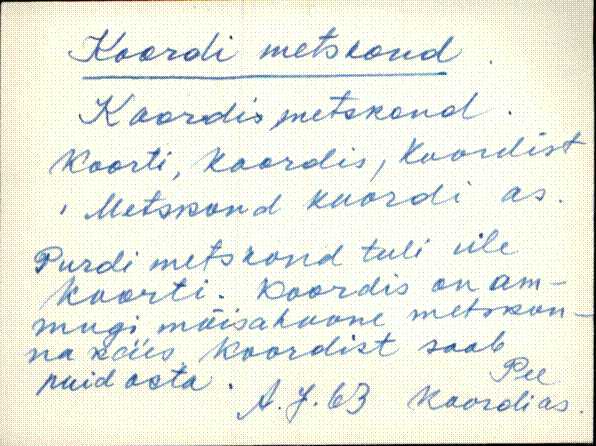 Koordi metskond.
Koordis, metskond.
Koorti, koordis, koordist
, Metskond koordi as.
Purdi metskond tuli üle
koorti. Koordis on am-
mugi mõisahoone metskon-
na käes. Koordist saab
puid osta.
A. J. 63 Pee
Koordi as.